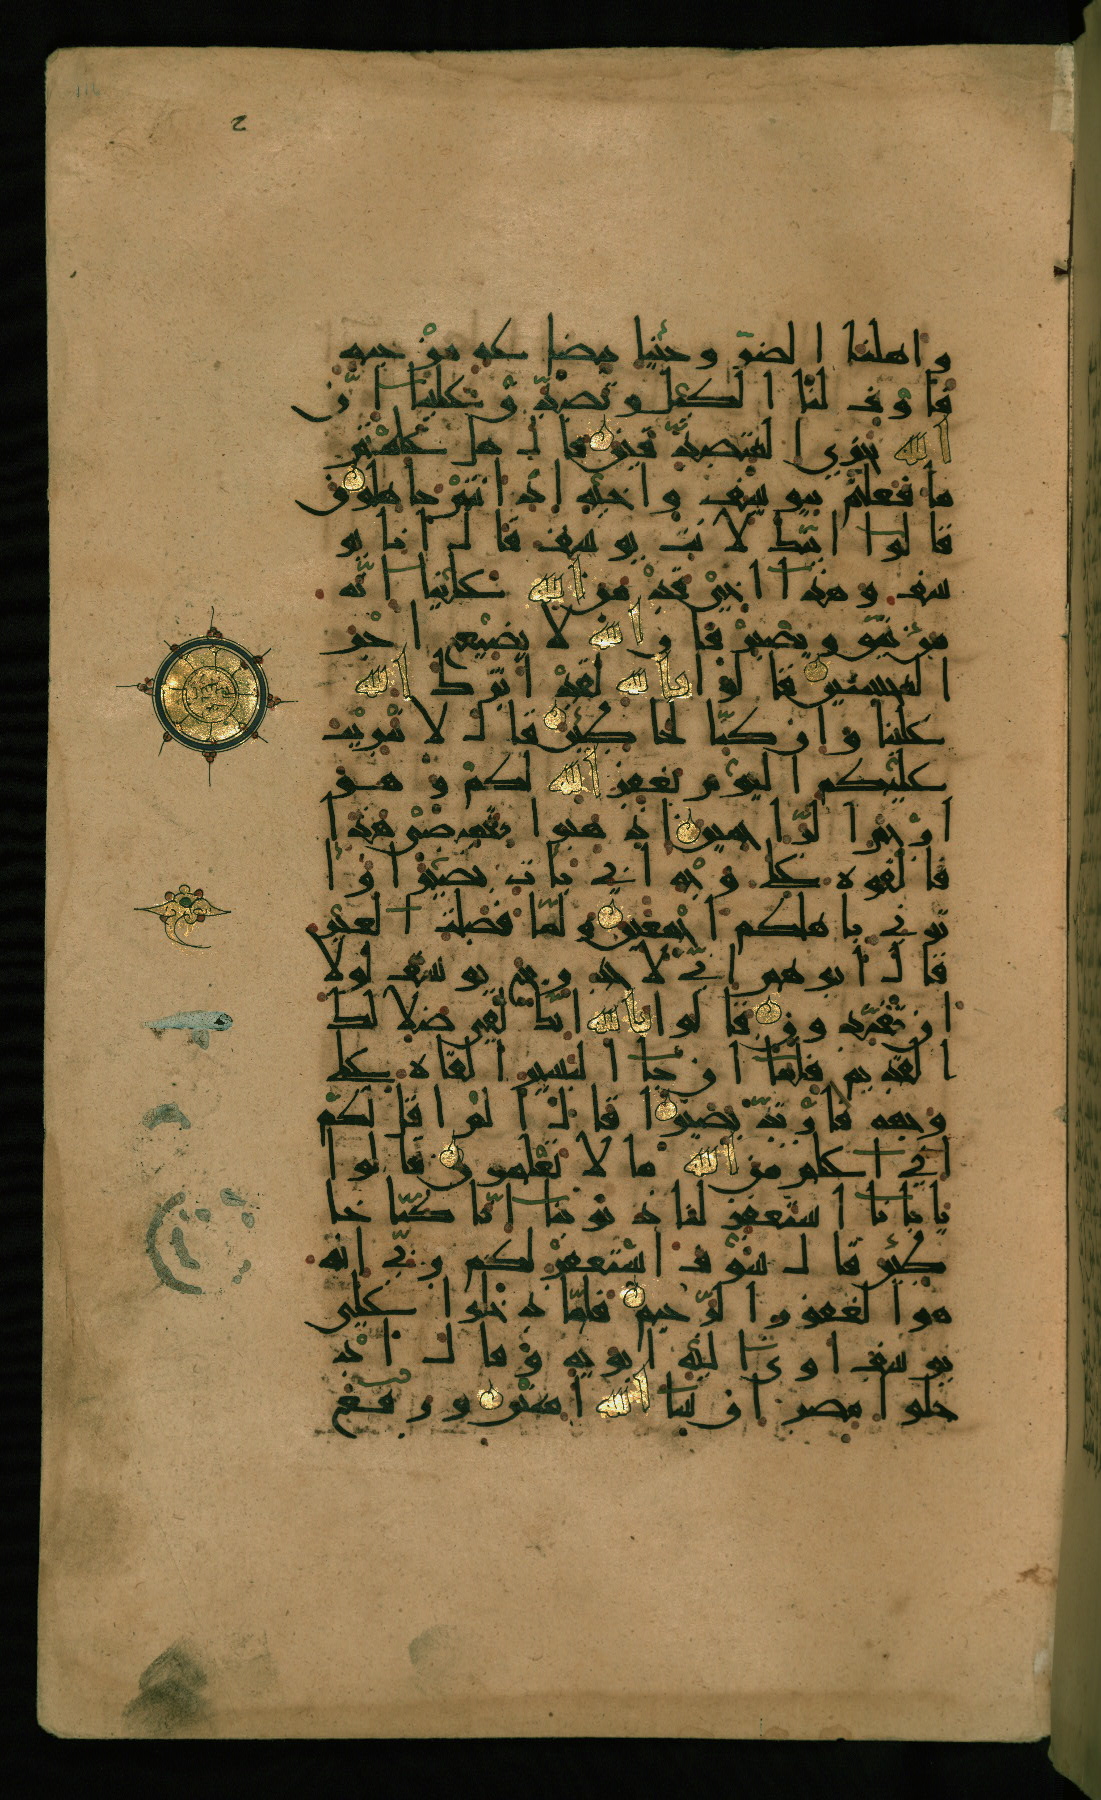 واهلنا الضر وجئنا ببضاعة مزجية
فاوف لنا الكيل وتصدق علينا ان
الله يجزي المتصدقين قال هل علمتم
ما فعلتم بيوسف واخيه اذ انتم جاهلون
قالوا انك لانت يوسف قال انا يو
سف وهذا اخي قد من الله علينا انه
من يتق ويصبر فان الله لا يضيع اجر
المحسنين قالوا تالله لقد اثرك الله
علينا وان كنا لخاطئين قال لا تثريب
عليكم اليوم يغفر الله لكم وهو
ارحم الراحمين اذهبوا بقميصي هذا
فالقوه على وجه ابي يات بصيرا وا
توني باهلكم اجمعين ولما فصلت العير
قال ابوهم اني لاجد ريح يوسف لولا
ان تفندون قالوا تالله انك لفي ضلالك
القديم فلما ان جا البشير القاه على
وجهه فارتد بصيرا قال الم اقل لكم
اني اعلم من الله ما لا تعلمون قالوا
يابانا استغفر لنا ذنوبنا انا كنا خا
طئين قال سوف استغفر لكم ربي انه
هو الغفور الرحيم فلما دخلوا على
يوسف اوى اليه ابويه وقال اد
خلوا مصر ان شا الله امنين ورفع